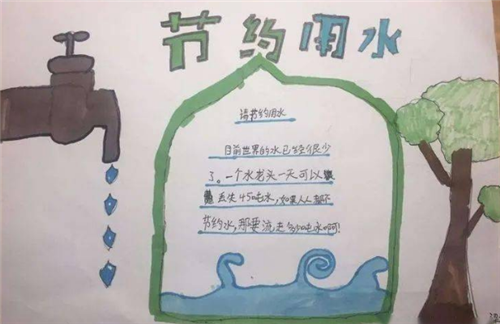 节约用水
请节约用水
目前世界的水已经很少
了。一个水老头一天可以
丢失450吨水,如果人人都不
节约水,那要流走多少吨水啊!